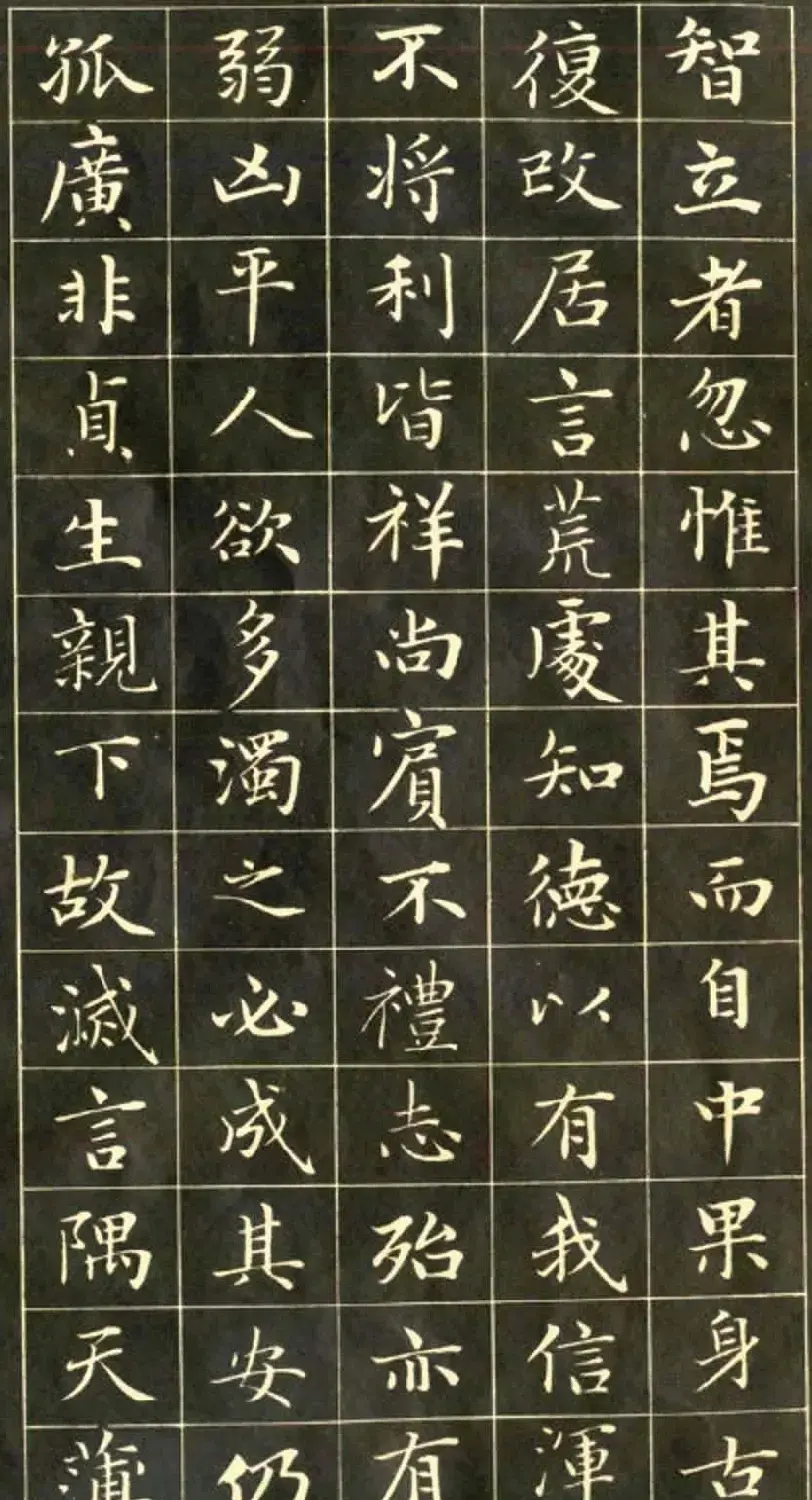 智立者忽惟其焉而自中果身古
復改居言荒處知德以有我信渾
不将利皆祥尚賓不禮志殆亦有
弱凶平人欲多濁之必成其安仍
孤廣非貞生親下故滅言隅天蒲